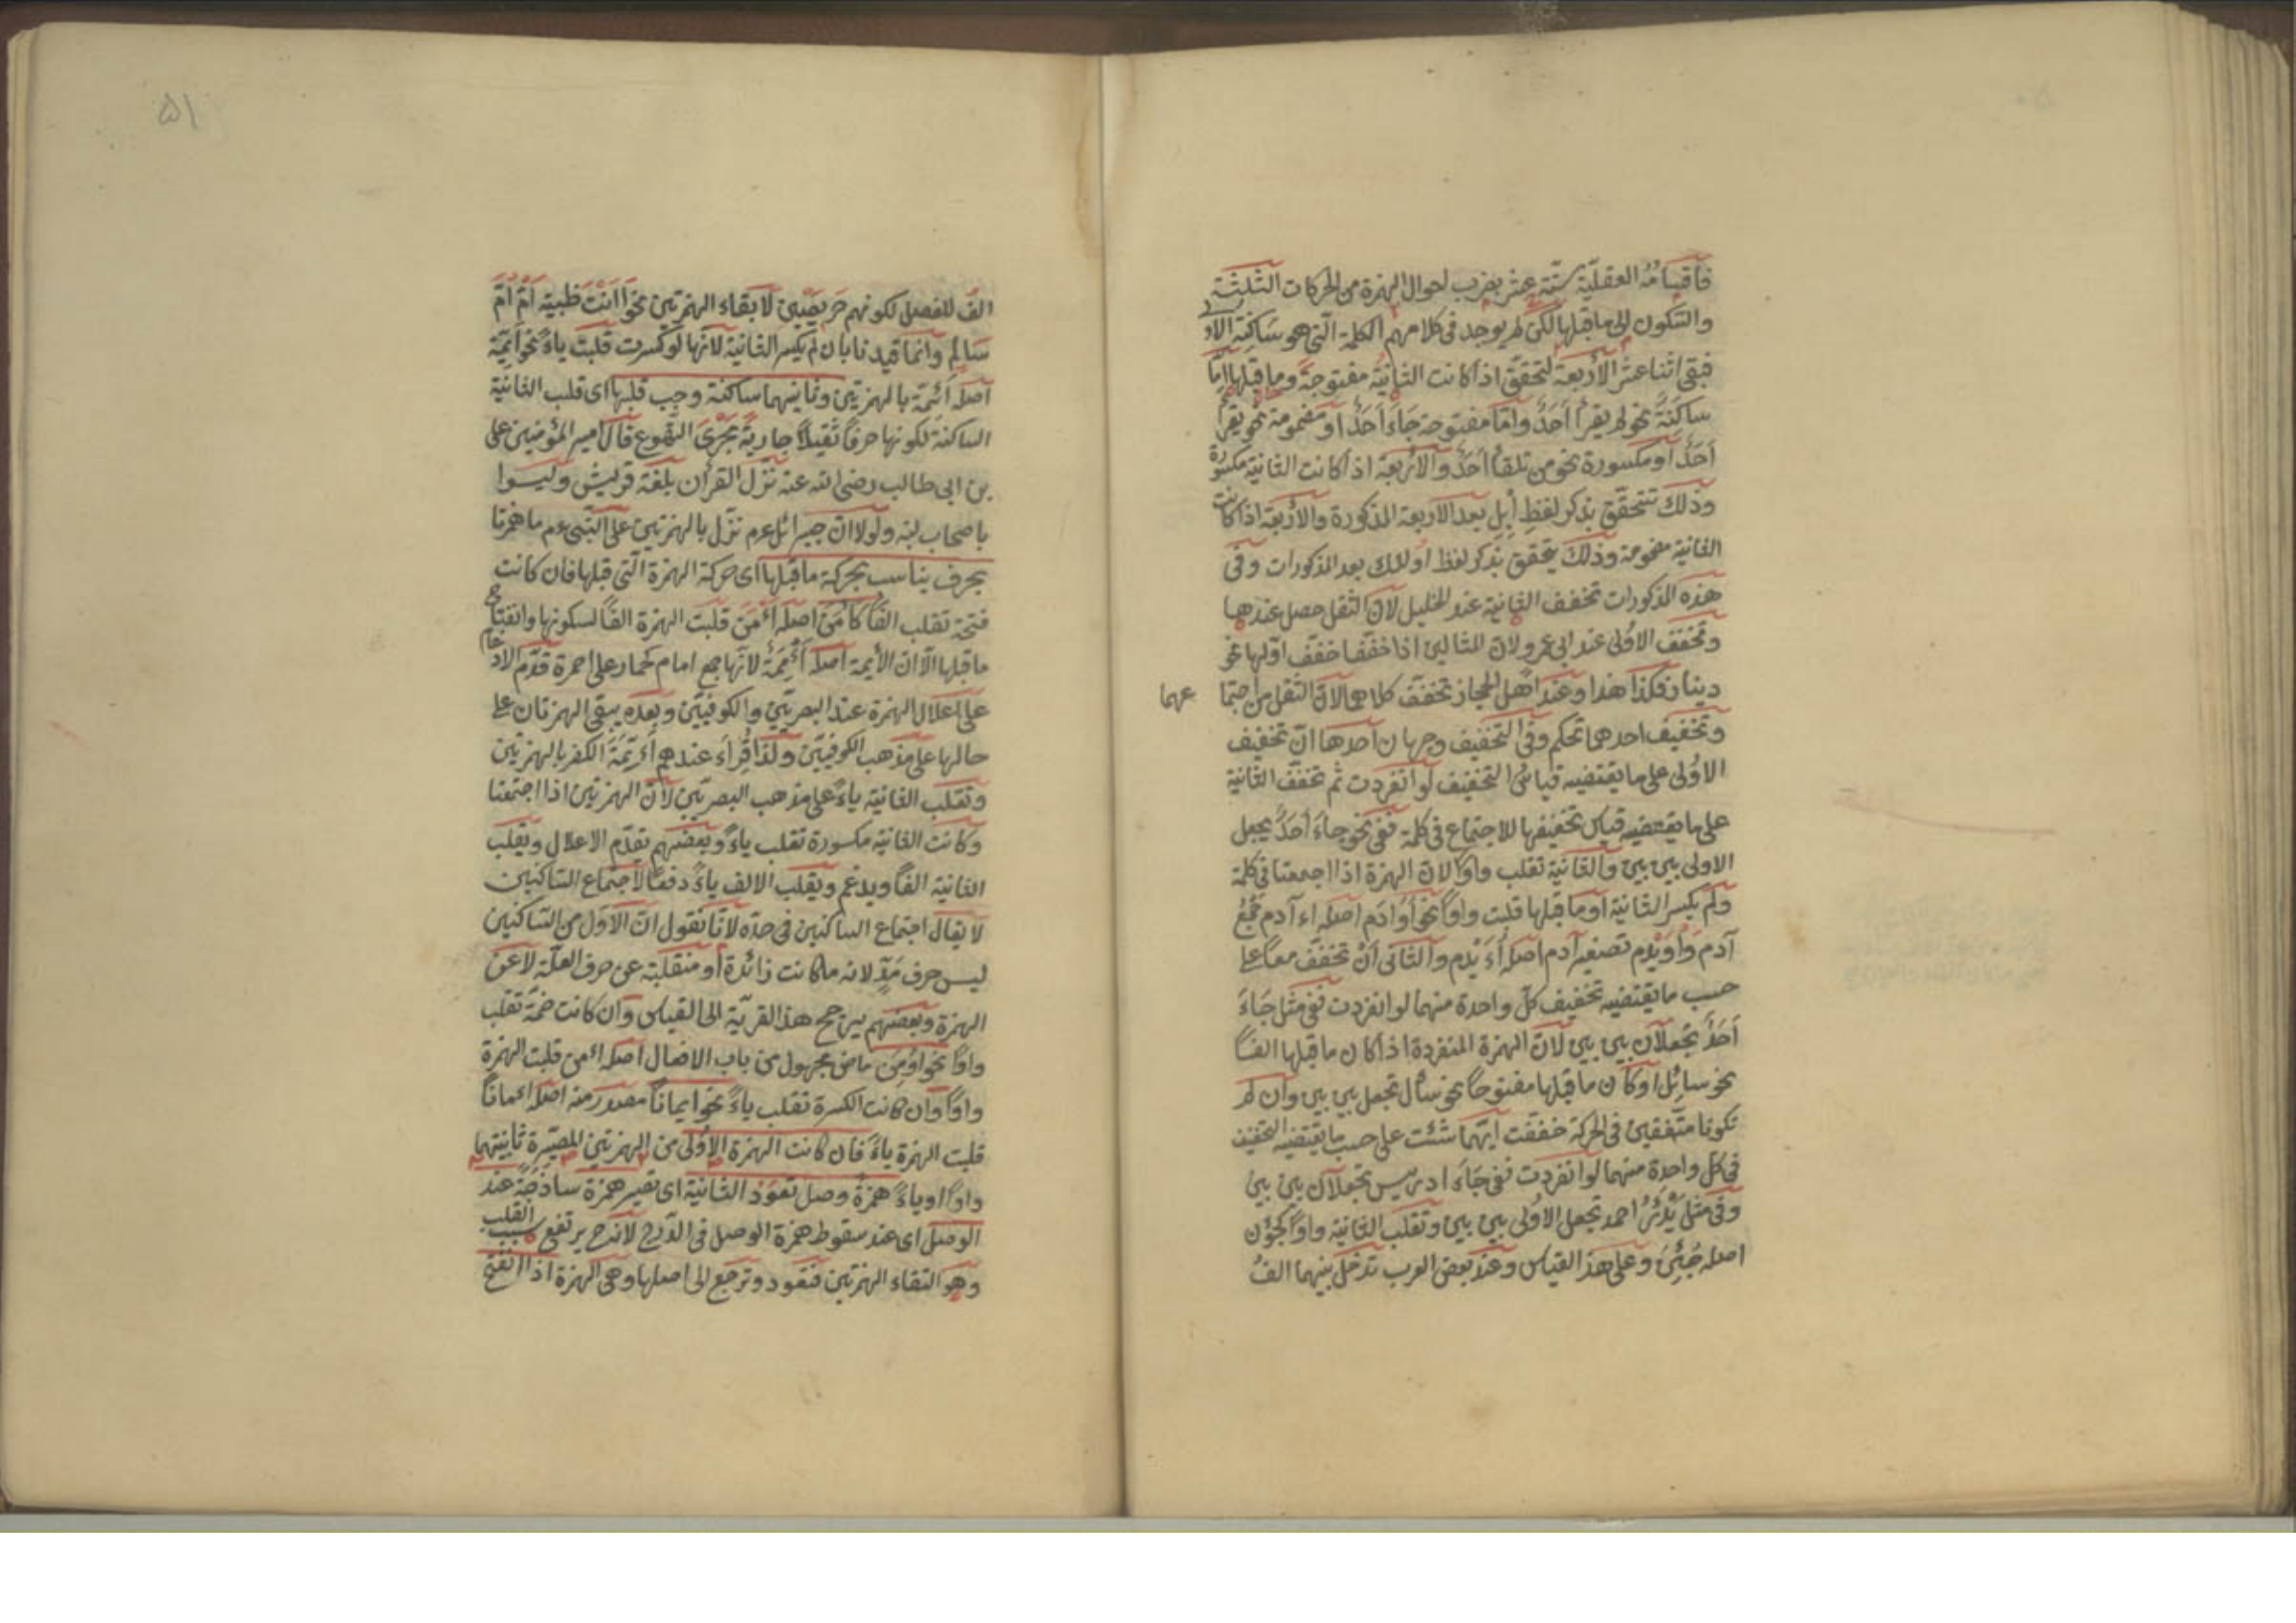 فأقسامه العقلية ستة عشر بضرب احوال الهمزة من الحركات الثلثة
والسكون الى ما قبلها لكن لم يوجد فى كلامهم الكلمة التى هو ساكنة الاو
فبقى اثنا عشر الأربعة لتحقق اذا كانت الثانية مفتوحة وما قبلها امّا
ساكنة نحو لم يقرأ أحَدٌ وامّا مفتوحة جَاءَ أَحَدٌ او مضمومة نحو يقرأ
أحَدٌ او مكسورة نحو من تلقأ أحَدٌ والاربعة اذا كانت الثانية مكسورة
وذلك تتحقق بذكر لفظ إبل بعد الاربعة المذكورة والأربعة اذا كانت
الثانية مضمومة وذلك يتحقق بذكر لفظ اولئك بعد المذكورات وفى
هذه المذكورات تخفف الثانية عند الخليل لانّ الثقل حصل عندها
وتخفف الاولى عند ابى عمرو لان المثالين اذا خففا خفف اولها نحو
دينار فكذا هذا وعند أهل الحجاز تخفف كلاهما لانّ الثقل من اجتما
عهما
وتخفيف احدهما تحكم وفى التخفيف وجهان أحدها انّ تخفيف
الاولى على ما يقتضيه قياس التخفيف لو انفردت ثم تخفف الثانية
على ما يقتضيه قياس تخفيفها للاجتماع فى كلمة ففى نحو جاءَ أحَدٌ يجعل
الاولى بين بين والثانية تقلب واوًا لان الهمزة اذا اجتمعتا فى كلمة
ولم يكسر الثانية او ما قبلها قلبت واوًا نحو أوَادَم اصله اء آدم جمع
آدم وأُوَيْدِم تصغير آدم اصله أُءَيْدِم والثانى أن تخفف معًا على
حسب ما يقتضيه تخفيف كلّ واحدة منهما لو انفردت ففى مثل جَاءَ
أَحَدٌ تجعلان بين بين لانّ الهمزة المنفردة اذا كان ما قبلها الفًا
نحو سائل او كان ما قبلها مفتوحًا نحو سأل تجعل بين بين وان لم
تكونا متفقين فى الحركة خففت ايتهما شئت على حسب ما يقتضيه التخفيف
فى كل واحدة منهما لو انفردت ففى جَاءَ ادريس تجعلان بين بين
وفى مثل يَدْرَئُ احمد تجعل الاولى بين بين وتقلب الثانية واوًا كجُوَن
اصله جُئَن وعلى هذا القياس وعند بعض العرب تدخل بينهما الفُ
٥١
الفٌ للفصل لكونهم حريصين لابقاء الهمزتين نحو أاأنت ظبية أم أُمّ
سالم وانما قيدنا بان لم يكسر الثانية لانّها لو كسرت قلبت ياءً نحو أيمّة
اصله أَئمّة بالهمزتين وثانيتهما ساكنة وجب قلبها اى قلب الثانية
الساكنة لكونها حرفًا ثقيلاً جارية مجرى التهوع قال امير المؤمنين على
بن ابى طالب رضى الله عنه نزل القرآن بلغة قريش وليسوا
باصحاب نبر ولولا انّ جبرائل ءم نزّل بالهمزتين على النّبى ءم ما همزنا
بحرف يناسب بحركة ما قبلها اى حركة الهمزة الّتى قبلها فان كانت
فتحة تقلب الفًا كآمَنَ اصله أَءْمَنَ قلبت الهمزة الفًا لسكونها وانفتاح
ما قبلها الّا ان الأيمة اصله أَئْمِمَةٌ لانّها جمع امام كحمار على احمرة قدّم الادغام
على اعلال الهمزة عند البصريّين والكوفيّين وبعده يبقى الهمزتان على
حالها على مذهب الكوفيّين ولذا قراء عندهم أَئِمَّةَ الكفر بالهمزتين
وتقلب الثانية ياءً على مذهب البصريّين لانّ الهمزتين اذا اجتمعتا
وكانت الثانية مكسورة تقلب ياءً وبعضهم يقدّم الاعلال ويقلب
الثانية الفًا ويدغم ويقلب الالف ياءً دفعًا لاجتماع الساكنين
لا يقال اجتماع الساكنين فى حدّه لانّا نقول انّ الاوّل من الساكنين
ليس حرف مدّ لانه ما كانت زائدة او منقلبة عن حرف العلّة لا عن
الهمزة وبعضهم يرجح هذا القرية الى القياس وان كانت ضمّة تقلب
واوًا نحو اُومِنَ ماض مجهول من باب الافعال اصله اءمن قلبت الهمزة
واوًا وان كانت الكسرة تقلب ياءً نحو ايمانًا مصدر منه اصله ائمانًا
قلبت الهمزة ياءً فان كانت الهمزة الاولى من الهمزتين المصيّرة ثانيتهما
واوًا او ياءً همزة وصل تعود الثانية اى تصير همزة ساذجة عند
الوصل اى عند سقوط همزة الوصل فى الدّرج لانه ح يرتفع سبب القلب
وهو التقاء الهمزتين فتعود وترجع الى اصلها وهى الهمزة اذا انفتح